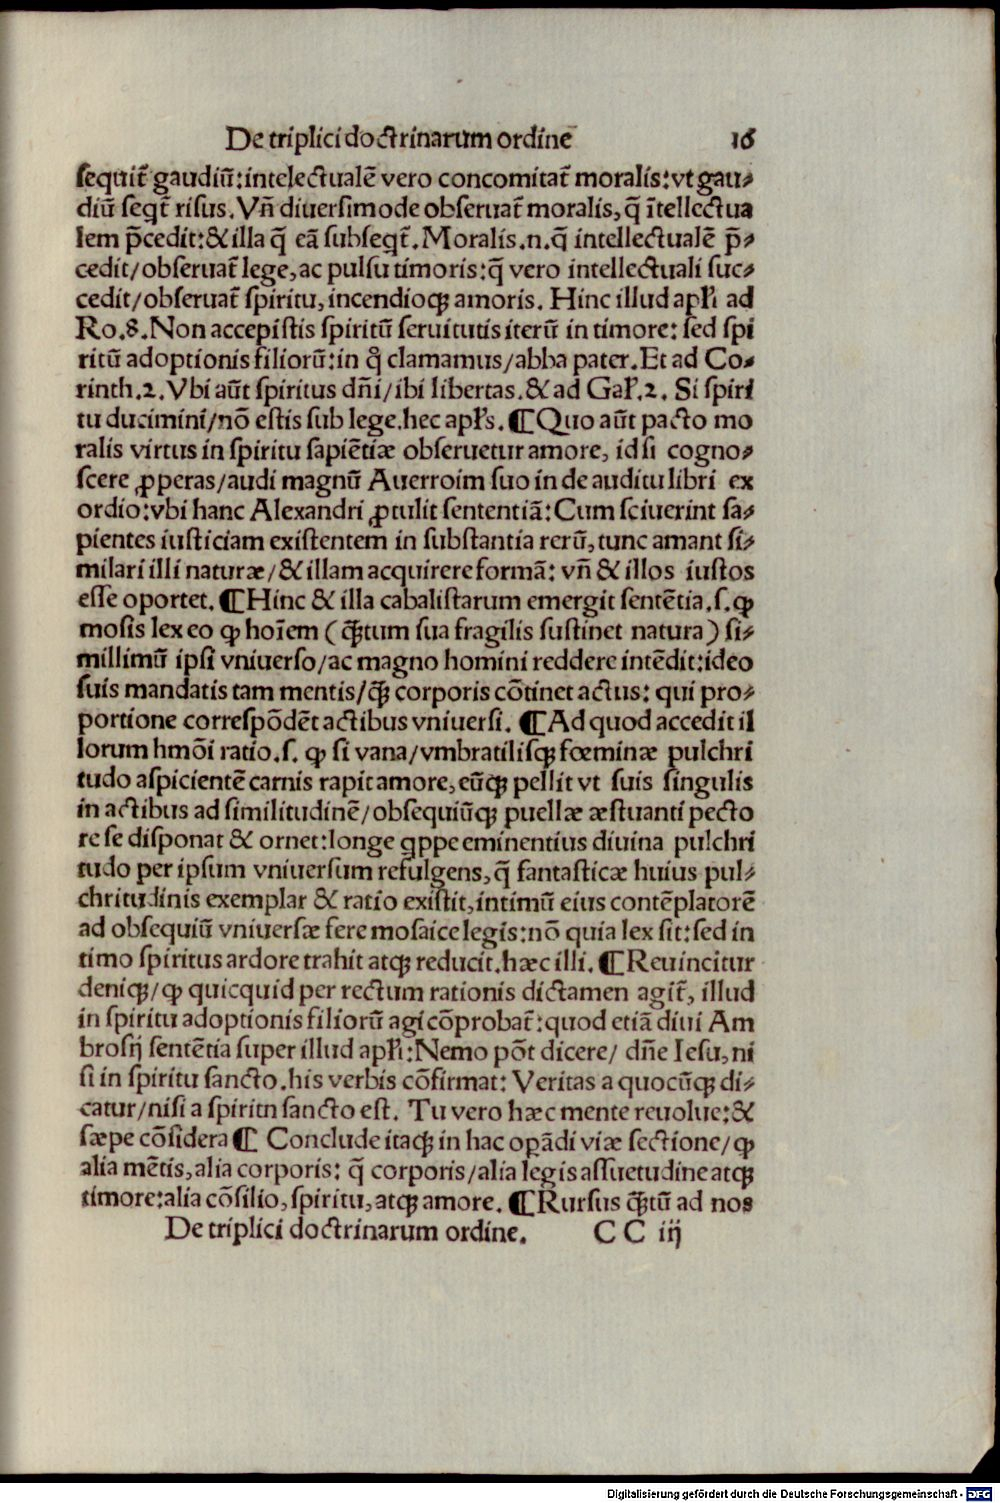 De triplici doctrinarum ordine 16
sequit̃ gaudiũ:intelectualẽ vero concomitat̃ moralis:vt gau⸗
diũ seqt̃ risus.Vñ diuersimode obseruat̃ moralis,q̃ ĩtellectua
lem p̃cedit:&illa q̃ eã subseqt̃.Moralis.n.q̃ intellectualẽ p̃⸗
cedit/obseruat̃ lege,ac pulsu timoris:q̃ vero intellectuali suc⸗
cedit/obseruat̃ spiritu,incendioqꝫ amoris. Hinc illud apl̃i ad
Ro.8.Non accepistis spiritũ seruitutis iterũ in timore: sed spi
ritũ adoptionis filiorũ:in q̃ clamamus/abba pater.Et ad Co⸗
rinth.2.Vbi aũt spiritus dñi/ibi libertas.& ad Gal̃.2. Si spiri
tu ducimini/nõ estis sub lege.hec apl̃s.¶Quo aũt pacto mo
ralis virtus in spiritu sapiẽtiæ obseruetur amore, id si cogno⸗
scere ꝓperas/audi magnũ Auerroim suo in de auditu libri ex
ordio:vbi hanc Alexandri ꝓtulit sententiã:Cum sciuerint sa⸗
pientes iusticiam existentem in substantia rerũ,tunc amant si⸗
milari illi naturæ/&illam acquirere formã: vñ & illos iustos
esse oportet.¶Hinc & illa cabalistarum emergit sentẽtia.s.ꝙ
mosis lex eo ꝙ hoĩem (q̃tum sua fragilis sustinet natura) si⸗
millimũ ipsi vniuerso/ac magno homini reddere intẽdit:ideo
suis mandatis tam mentis/q̃ꝫ corporis cõtinet actus: qui pro⸗
portione correspõdẽt actibus vniuersi. ¶Ad quod accedit il
lorum hmõi ratio.s. ꝙ si vana/vmbratilisqꝫ fœminæ pulchri
tudo aspicientẽ carnis rapit amore,eũqꝫ pellit vt suis singulis
in actibus ad similitudinẽ/obsequiũqꝫ puellæ æstuanti pecto
re se disponat & ornet:longe qppe eminentius diuina pulchri
tudo per ipsum vniuersum refulgens,q̃ fantasticæ huius pul⸗
chritudinis exemplar & ratio existit,intimũ eius contẽplatorẽ
ad obsequiũ vniuersæ fere mosaice legis:nõ quia lex sit:sed in
timo spiritus ardore trahit atqꝫ reducit.hæc illi.¶Reuincitur
deniqꝫ/ꝙ quicquid per rectum rationis dictamen agit̃, illud
in spiritu adoptionis filiorũ agi cõprobat̃:quod etiã diui Am
brosij sentẽtia super illud apl̃i:Nemo põt dicere/ dñe Iesu,ni
si in spiritu sancto.his verbis cõfirmat: Veritas a quocũqꝫ di⸗
catur/nisi a spiritn sancto est. Tu vero hæc mente reuolue:&
sæpe cõsidera¶ Conclude itaqꝫ in hac opãdi viæ sectione/ꝙ
alia mẽtis,alia corporis: q̃ corporis/alia legis assuetudine atqꝫ
timore:alia cõsilio,spiritu,atqꝫ amore. ¶Rursus q̃tũ ad nos
De triplici doctrinarum ordine. CC iij
Digitalisierung gefördert durch die Deutsche Forschungsgemeinschaft - DFG